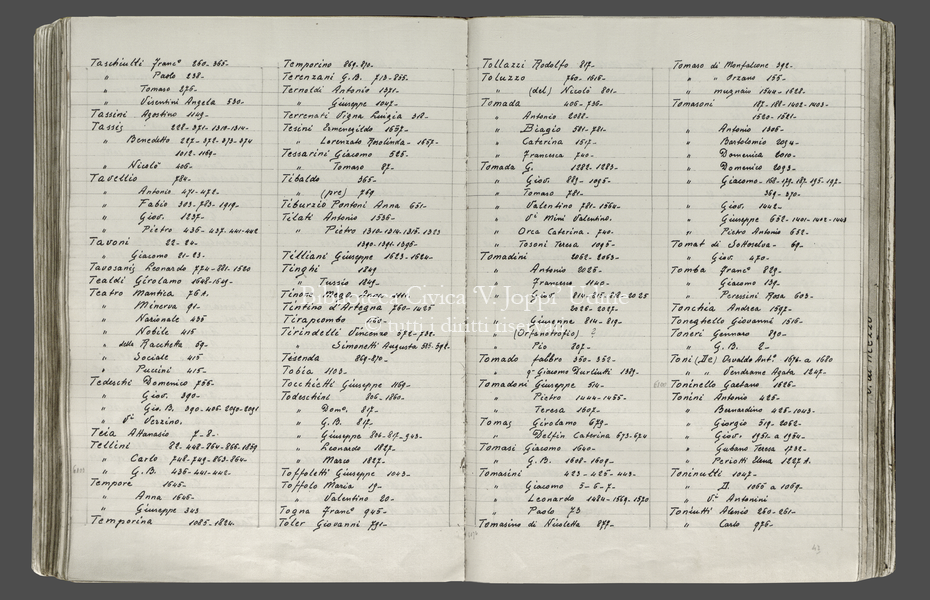 Taschiutti Franc° 260-365-
" Paolo 238-
" Tomaso 276-
" Visentini Angela 530-
Tassini Agostino 1149-
Tassis 228-371-1310-1314-
" Benedetto 227-372-373-374
1012-1169-
" Nicolò 406-
Tavellio 784-
" Antonio 471-472-
" Fabio 303-783-1919-
" Giov. 1237-
" Pietro 436-437-441-442
Tavoni 22-24-
" Giacomo 21-23-
Tavosanis Leonardo 774-881-1520
Tealdi Girolamo 1648-1649-
Teatro Mantica 76A.
" Minerva 91-
" Nazionale 435
" Nobile 415
" della Racchetta 69-
" Sociale 415
" Puccini 415-
Tedeschi Domenico 756-
" Giov. 390-
" Gio. B. 390-406-2090-2091
" Vi Verzino.
Teia Attanasio 7-8-
Tellini 22-448-864-866-1859
" Carlo 748-749-863-864-
" G.B. 436-441-442-
Tempore 1645-
" Anna 1645-
" Giuseppe 343
Temporina 1085-1824-
Temporino 869-870-
Terenzani G.B. 713-855-
Ternoldi Antonio 1371-
" Giuseppe 1047-
Terrenati Vigna Luigia 318-
Tesini Ermenegildo 1657-
" Lorenzato Anolinda-1657-
Tessarini Giacomo 525-
" Tomaso 87-
Tibaldo 365-
" (pre) 769
Tiburzio Pontoni Anna 651-
Tilati Antonio 1536-
" Pietro 1310-1314-1315-1323
1390-1391-1395-
Tilliani Giuseppe 1623-1624-
Tinghi 1849
" Tursio 1849-
Tintino d'Artegna 760-1425
Tirapiombo
Tirindelli Vincenzo 572-732-
" Simonetti Augusta 515-592-
Tésenda 869-870-
Tobia 1103-
Tocchietti Giuseppe 1169-
Todeschini 806-1860-
" Dom°. 817-
" G.B. 817-
" Giuseppe 806-817-943-
" Leonardo 1827-
" Marco 1827-
Toffoletti Giuseppe 1043-
Toffolo Maria 19-
" Valentino 20-
Togna Franc° 945-
Toler Giovanni 791-
Tollazzi Rodolfo 817-
Toluzzo 760-1616-
" (del) Nicolò 801-
Tomada 406-736-
" Antonio 2088-
" Biagio 581-781-
" Caterina 1517-
" Francesca 740-
Tomada G. 1282-1283-
" Giov. 889-1095-
" Tomaso 781-
" Valentino 781-1564-
" Vi Mini Valentino.
" Orca Caterina. 740-
" Tosoni Teresa 1095-
Tomadini 2062-2063-
" Antonio 2026-
" Francesco 1140-
" Giov.
2026-2027-
" Giuseppe 814-819-
" (Orfanotrofio) ?
" Pio 807-
Tomado fabbro 350-352-
" qm Giacomo Durliutti 1389-
Tomadoni Giuseppe 514-
" Pietro 1444-1455-
" Teresa 1607-
Tomas Girolamo 673-
" Delfin Caterina 673-674
Tomasi Giacomo 1640-
" G.B. 1608-1609-
Tomasini 423-425-443-
" Giacomo 5-6-7-
" Leonardo 1484-1569-1570
" Paolo 73
Tomasino di Nicoletta 877-
Tomaso di Monfalcone 392-
" " Orzano 155-
" mugnaio 1544-1628-
Tomasoni 187-188-1402-1403-
1520-1521-
" Antonio 1306-
" Bortolomio 2094-
" Domenica 2010-
" Domenico 2093-
" Giacomo-168-179-187-195-197-
369-370-
" Giov. 1442-
" Giuseppe 652-1401-1402-1403
" Pietro Antonio 652-
Tomat di Sottoselva - 69-
" Giov. 470-
Tomba Franc° 829-
" Giacomo 139-
" Peressini Rosa 603-
Tonchia Andrea 1597-
Toneghello Giovanni 1516-
Toneri Gennaro 830-
" G.B. 2-
Toni (De) Osvaldo Ant°. 1674-a 1680
" " Vendrame Agata 1247-
Toninello Gaetano 1626-
Tonini Antonio 425-
" Bernardino 425-1043-
" Giorgio 519-2062-
" Giov. 1951-a 1954-
" Gubano Teresa 1732-
" Periotti Elena 1227A.
Toninutti 1047-
" D. 1066 a 1069-
" Vi Antonini
Toniutti Alessio 260-261-
" Carlo 976-
43
Biblioteca Civica "V. Joppi" Udine
© tutti i diritti riservati